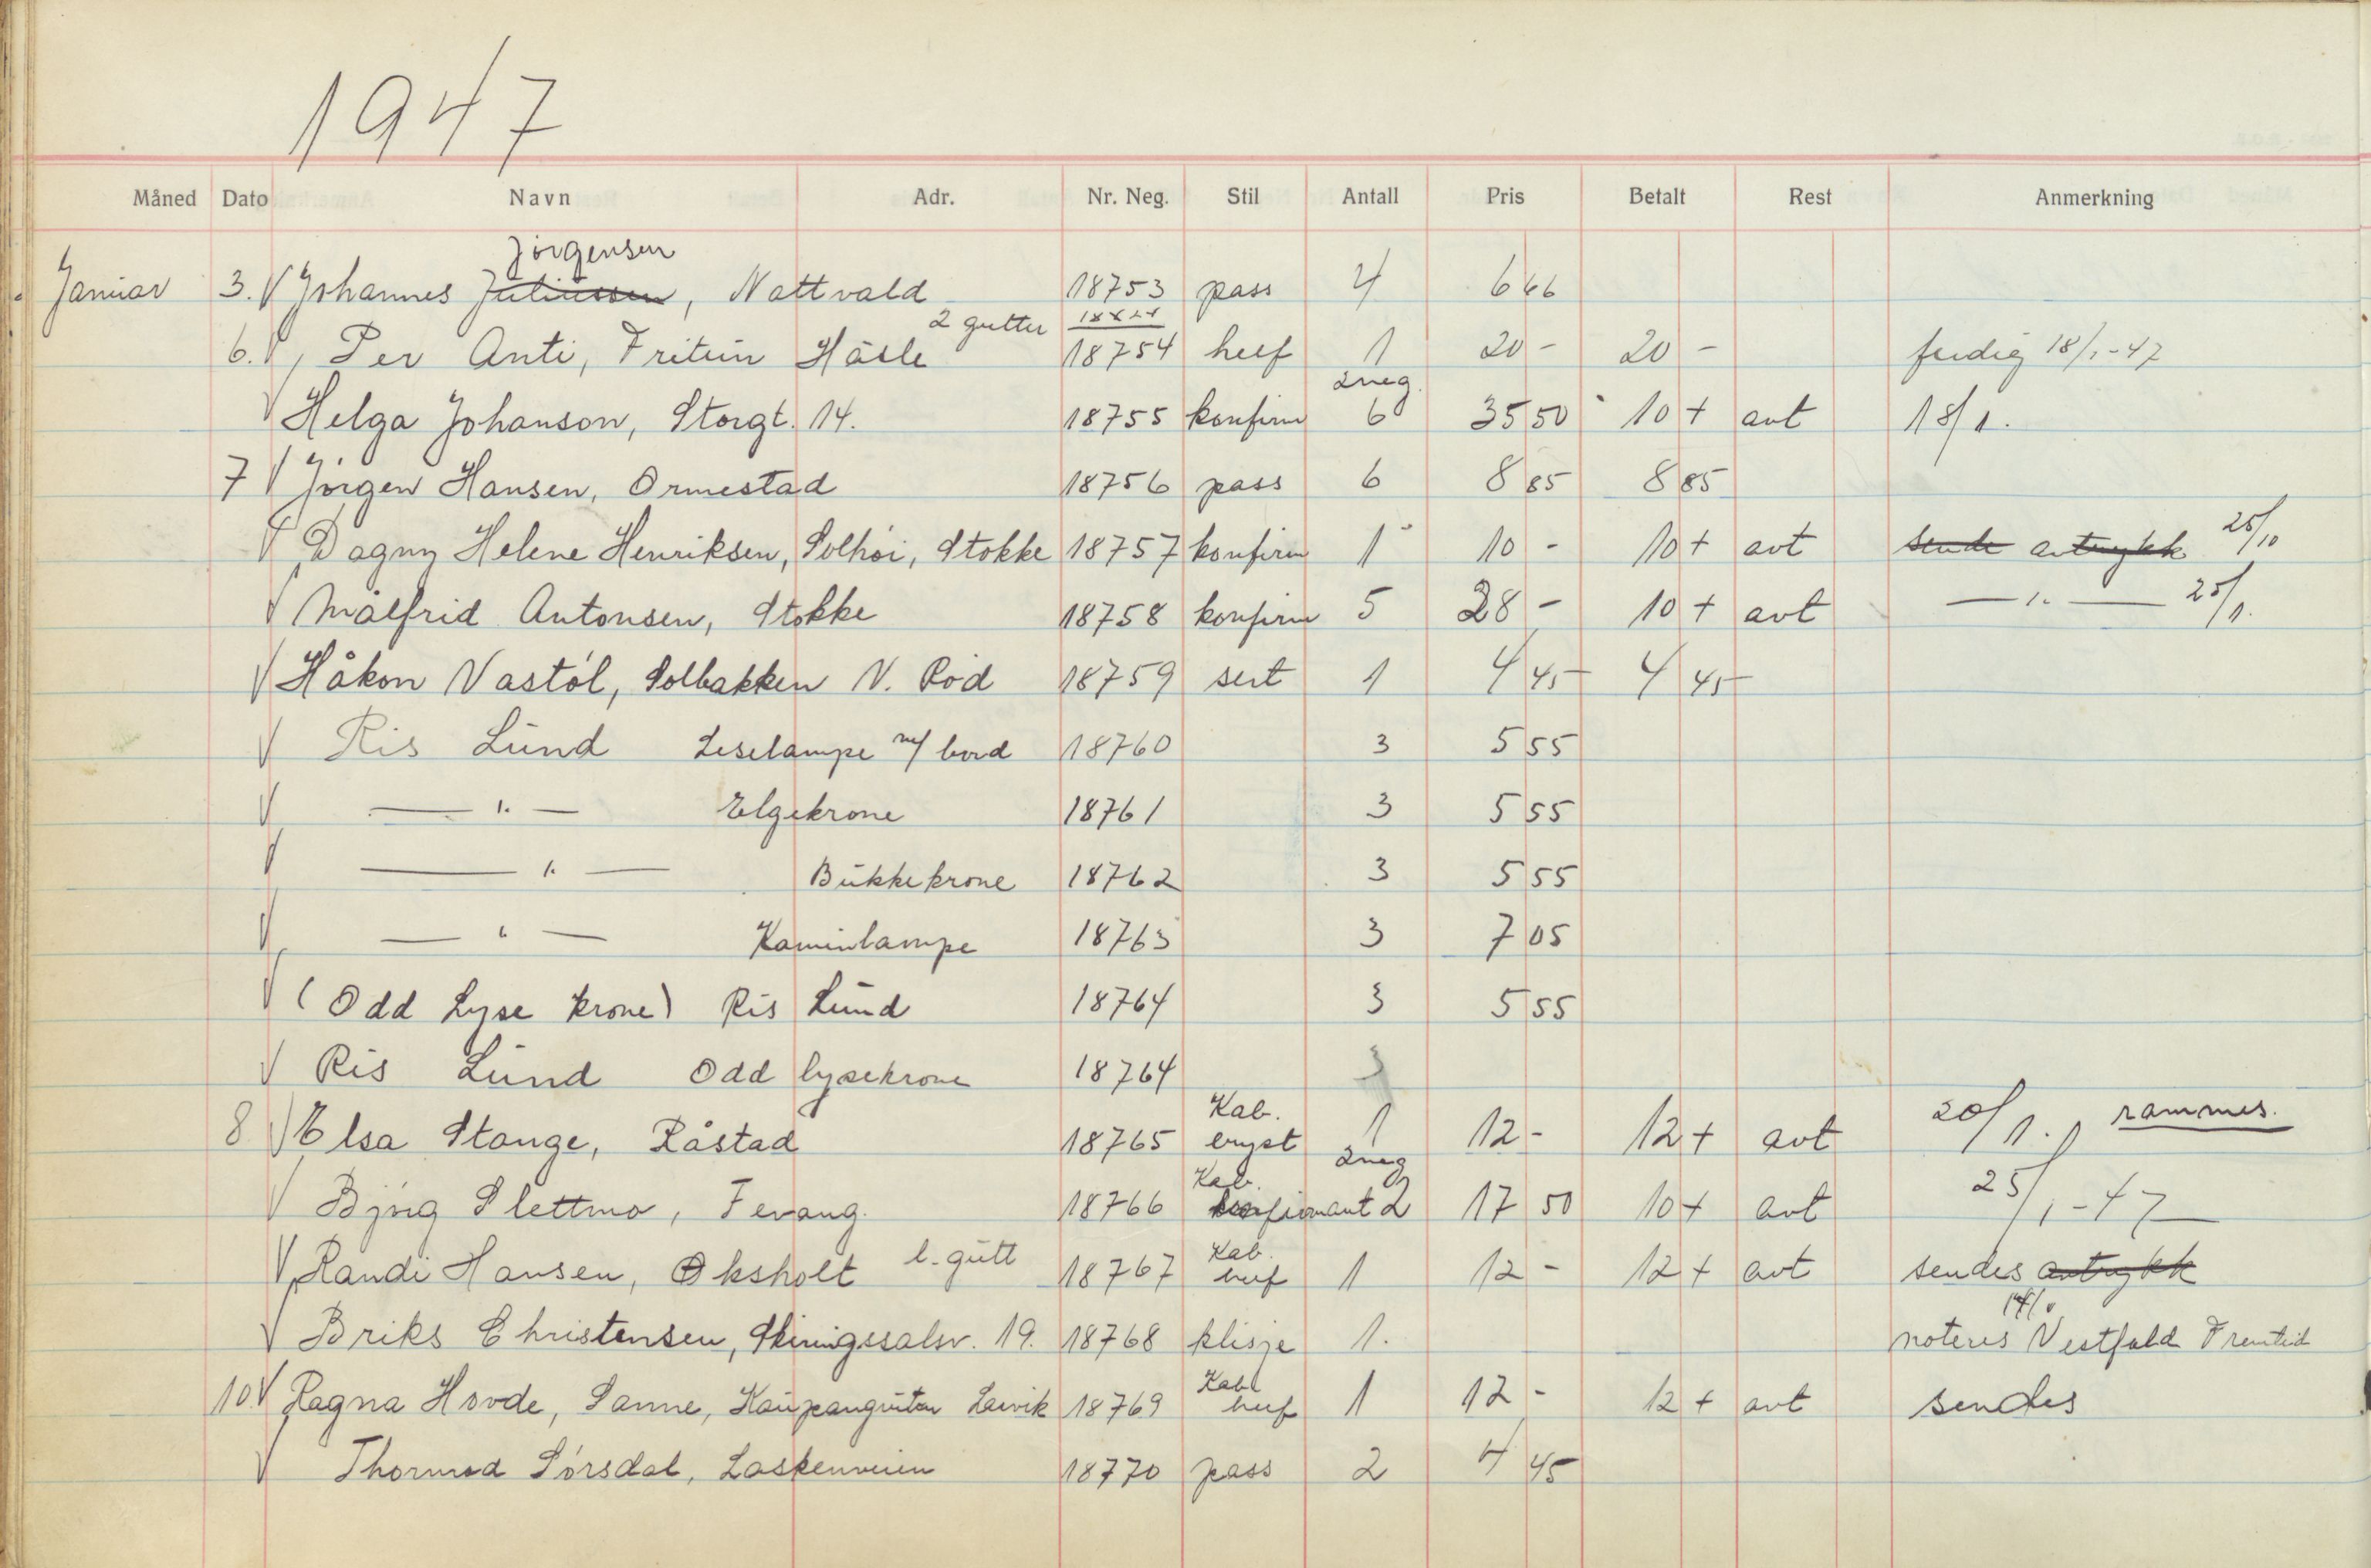 1947
Måned Dato Navn Adr. Nr. Neg. Stil Antall Pris Betalt Rest Anmerkning
Jörgensen
Januar 3. V Johannes Juliussen, Nattvald 18753 pass 4 6 66
2 gutter
6. V Per Anti, Fritun Håsle 18754 helf 1 20 - 20 - ferdig 18/1-47
2 neg.
V Helga Johanson, Storgt. 14. 18755 konfirm 6 35 50 10 + avt 18/1.
7 V Jörgen Hansen, Ormestad 18756 pass 6 8 85 8 85
V Dagny Helene Henriksen, Solhöi, Stokke 18757 konfirm 1 10 - 10 + avt sende avtrykk 25/10
V Målfrid Antonsen, Stokke 18758 konfirm 5 28 - 10 + avt — " — 25/1.
V Håkon Vastöl, Solbakken N. Röd 18759 sert 1 4 45 4 45
V Ris Lund Leselampe m/ bord 18760 3 5 55
V — " — Elgekrone 18761 3 5 55
V — " — Bukkekrone 18762 3 5 55
V — " — Kaminlampe 18763 3 7 05
V (Odd Lyse krone) Ris Lund 18764 3 5 55
V Ris Lund Odd lysekrone 18764 3
Kab. rammes.
8 V Elsa Stange, Råstad 18765 bryst 1 12 - 12 + avt 20/1.
Kab. 2 neg
V Björg Slettmo, Fevang. 18766 konfirmant 2 17 50 10 + avt 25/1-47
Kab.
V Randi Hansen, Oksholt l. gutt 18767 huf 1 12 - 12 + avt sendes avtrykk
V Briks Christensen, Skiringssalsv. 19. 18768 klisje 1. noteres Vestfold Fremtid
Kab
10 V Ragna Hovde, Sanne, Larvik 18769 huf 1 12 - 12 + avt sendes
V Thormod Sörsdal, Laskenveien 18770 pass 2 4 45